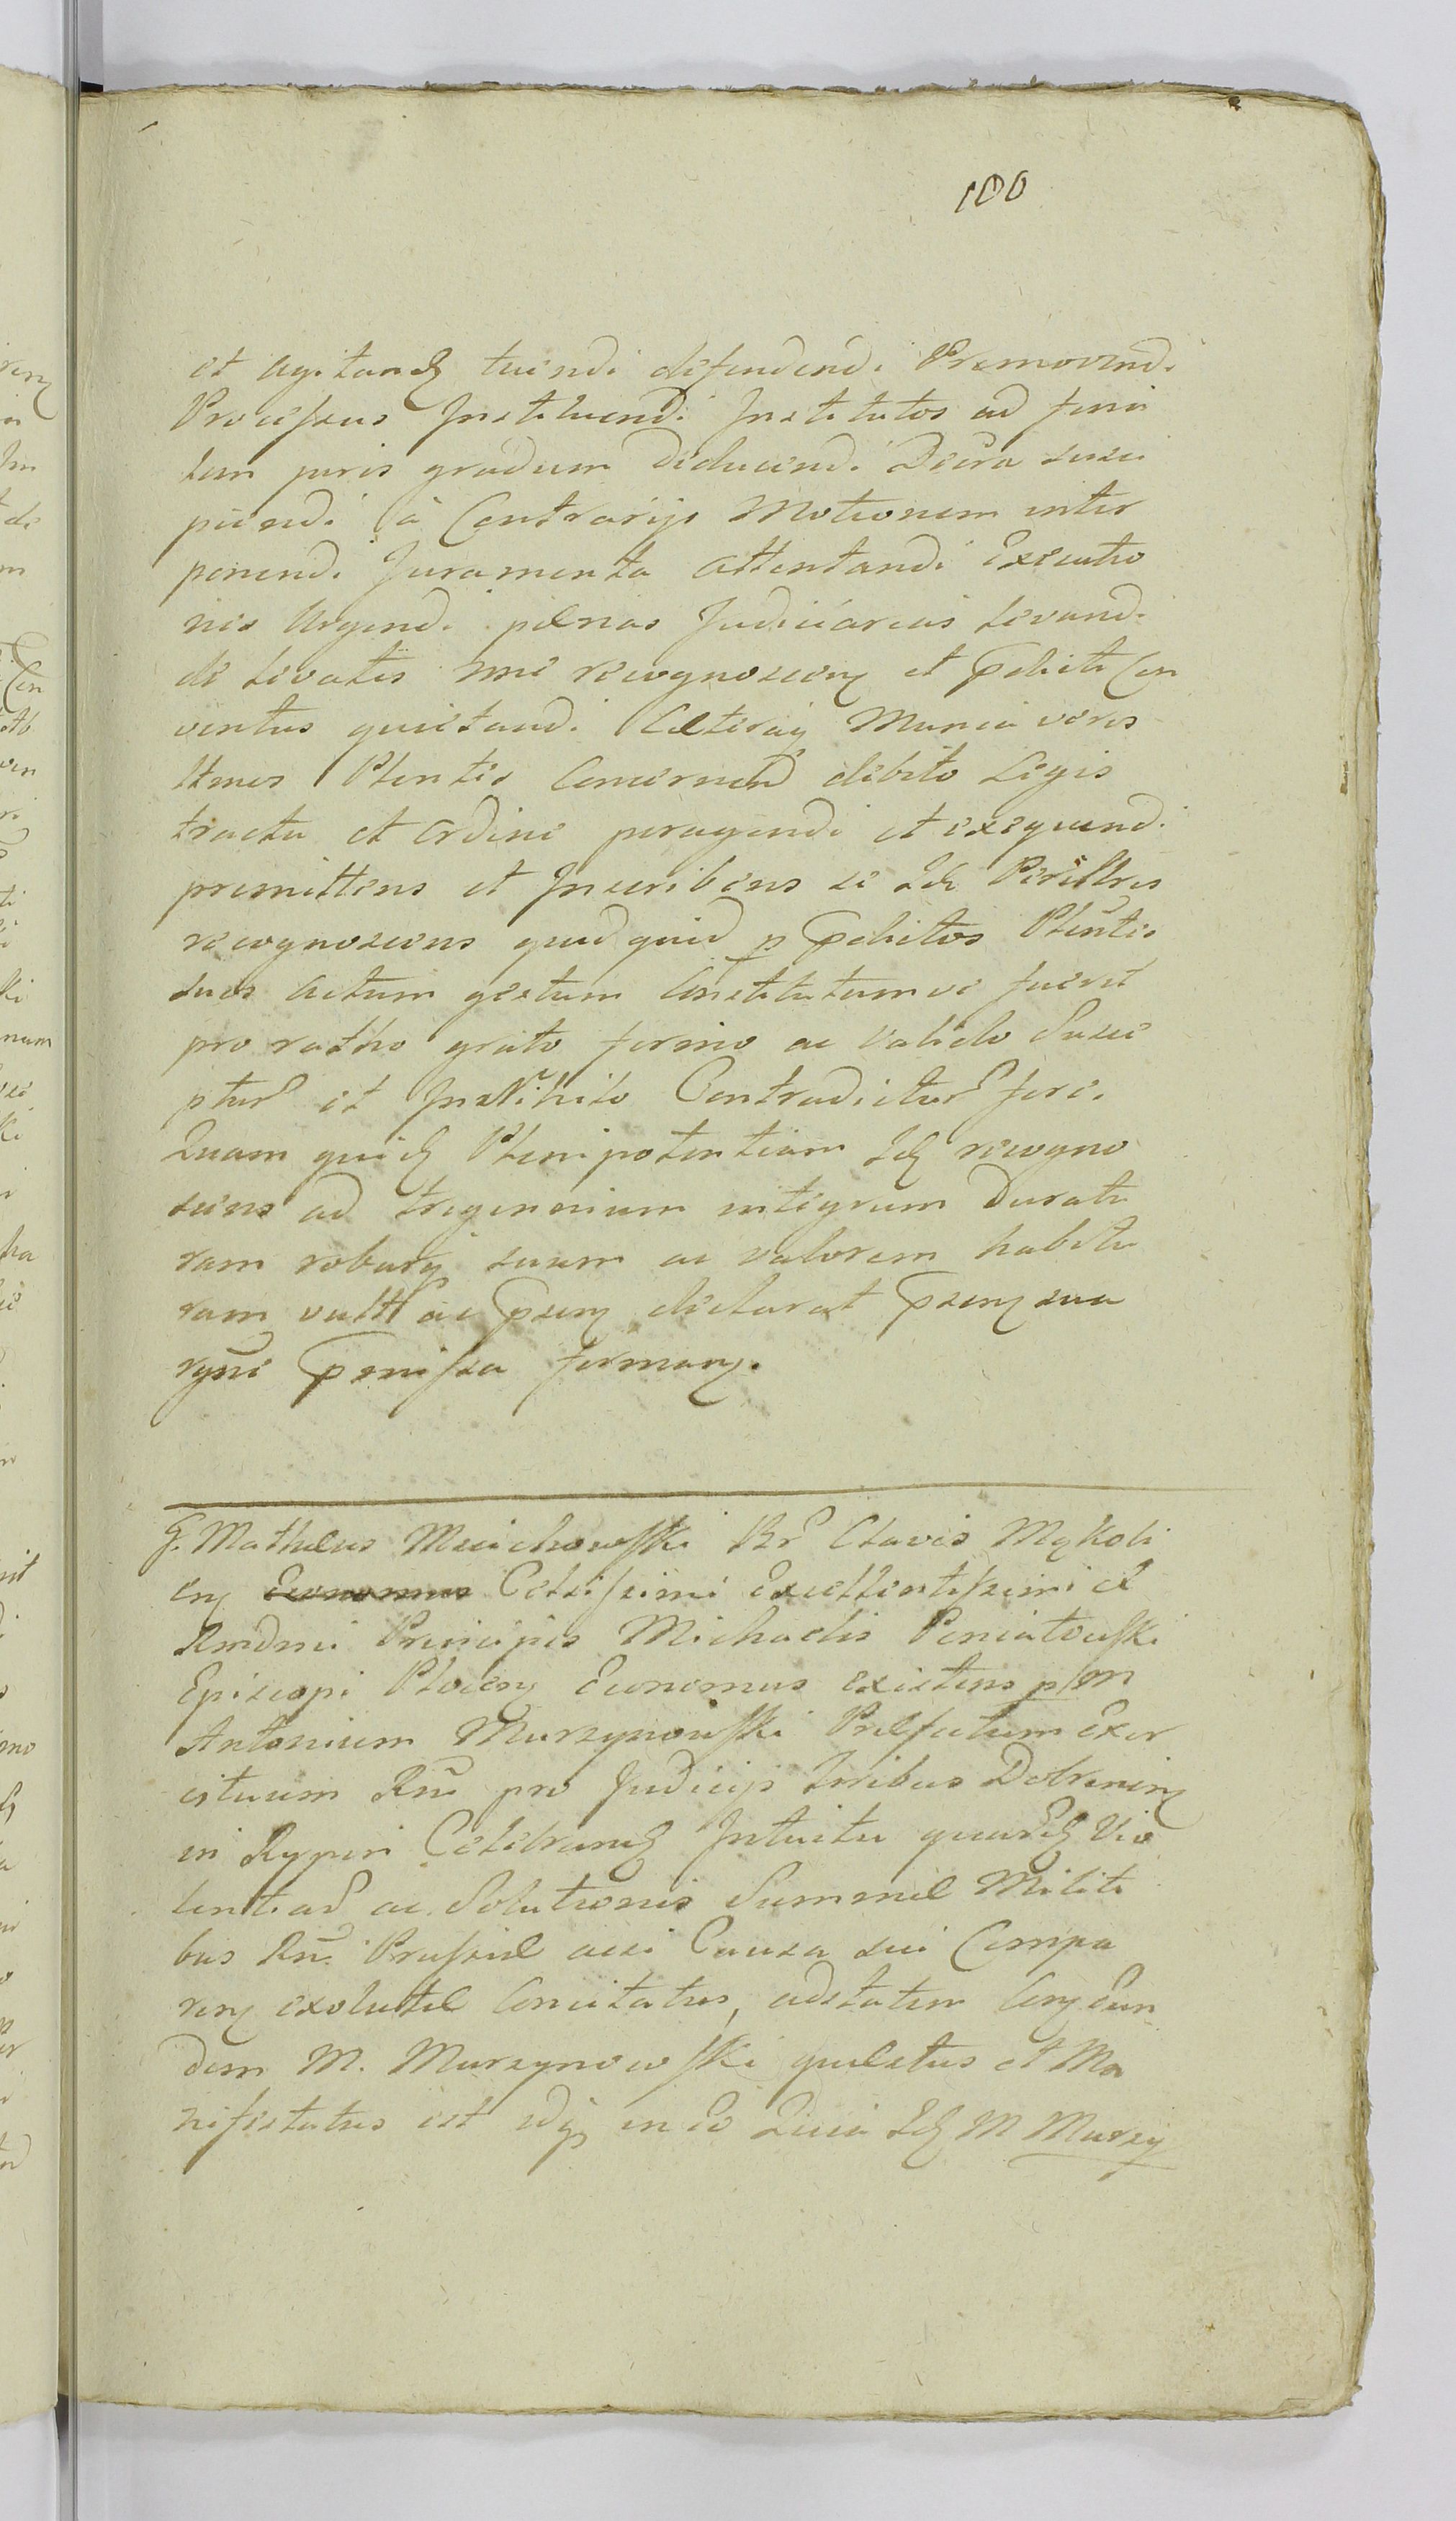 100
et agitandę tuendi defendendi Promovendi
Processus Instituendi Institutos ad fina
lem juris gradum deducendi Decra susci
piendi à Contrarijs Motionem inter
ponendi Juramenta attentandi Executio
nes Urgendi pœnas Judiciarias levandi
de levatis nne recognoscenę et pdicti Con
ventus quietandi Cæteraq Munia veros
ltmos Plentes Concernen debito Legis
tractu et ordine peragendi et exequendi
premittens et Inscribens se Idē Perillris
recognoscens quidquid p pdictos Plentes
suos actum gestum Constitutumve fuerit
pro ratho grato firmo ac valido Susce
ptur et In Nihilo Contradictur fore.
Quam quidę Plenipotentiam Idę recogno
scens ad trigennium integrum duratu
ram roburq suum ac valorem habitu
ram vult ac psenę declarat psenę sua
rgne pmissa firmanę.
G. Mathæus Muichowski Br Clavis Mykoli
enę Economus Celsissimi Excellentissimi et
Rmdmi Principis Michaelis Poniatowski
Episcopi Plocenę Economus existens p M
Antonium Murzynowski Præfectum Exer
cituum Rnī pro Judicijs trribus Dobrinenę
in Rypin Celebrandę Intuitu quardę Vio
lentiar ac Solutionis Summæ Militi
bus Rnī Prussiæ acsi Causa sui Compa
renę exolutæ Concitatus, adstatim Conę Eun
dem M. Murzynowski quæstus et Ma
nifestatus est idq in eo Quia Idę M Murzy